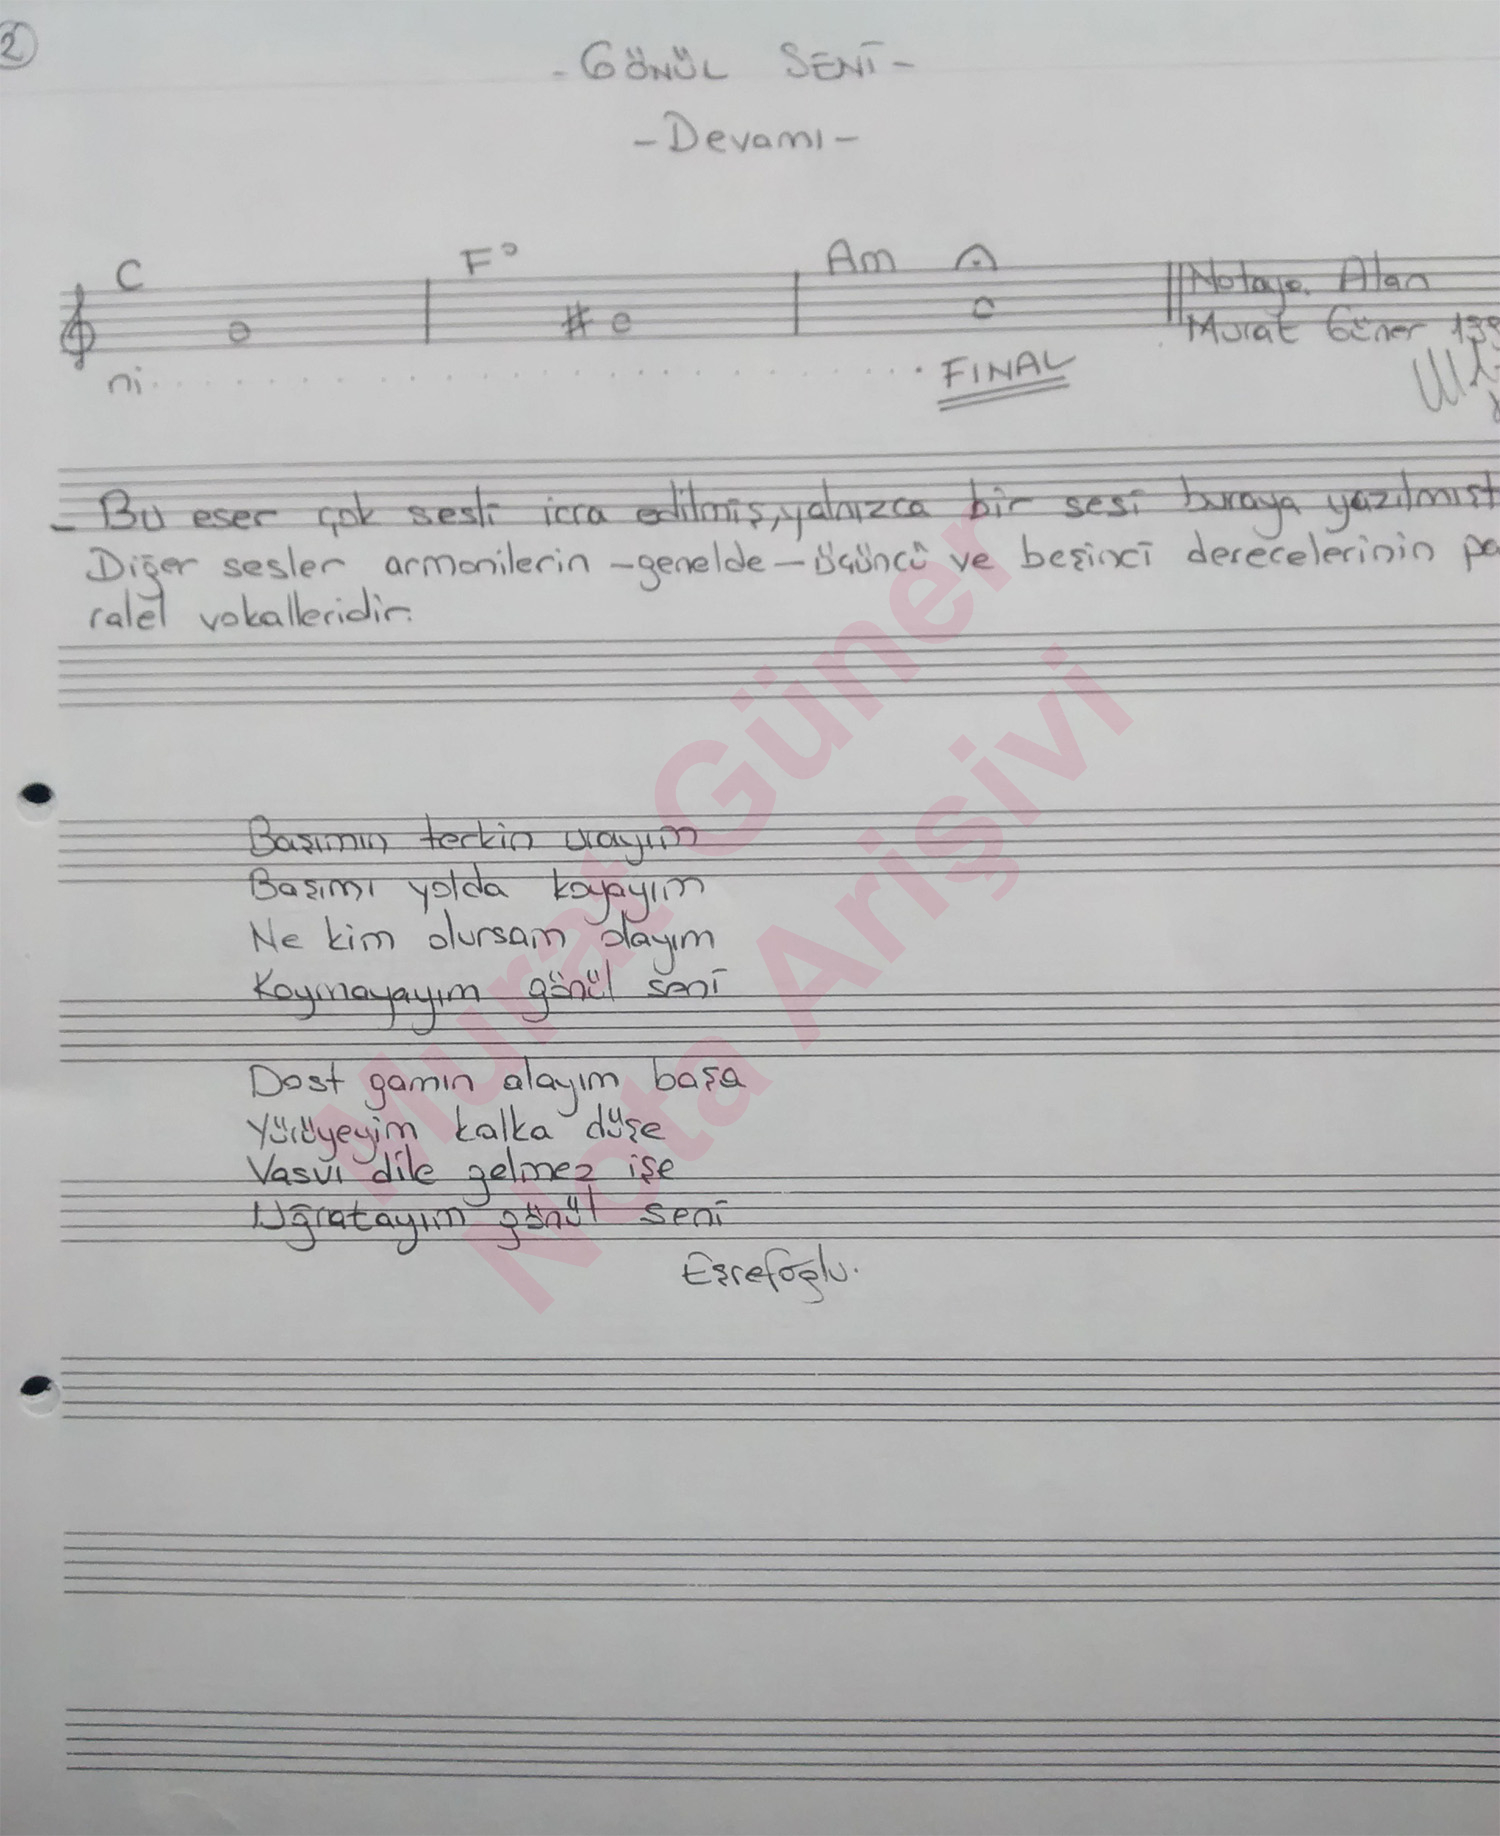 2
- GÖNÜL SENİ -
- Devamı -
C F° Am
Notaya Alan
Murat Güner
ni . . . . . . . . . . . . . . . . . . . FINAL
- Bu eser çok sesli icra edilmiş, yalnızca bir sesi buraya yazılmışt
Diğer sesler armonilerin - genelde - üçüncü ve beşinci derecelerinin pa
ralel vokalleridir.
Başımın terkin urayım
Başımı yolda koyayım
Ne kim olursam olayım
Koymayayım gönül seni
Dost gamın alayım başa
Yürüyeyim kalka düşe
Vasvı dile gelmez işe
Uğratayım gönül seni
Eşrefoğlu.
Murat Güner
Nota Arişivi